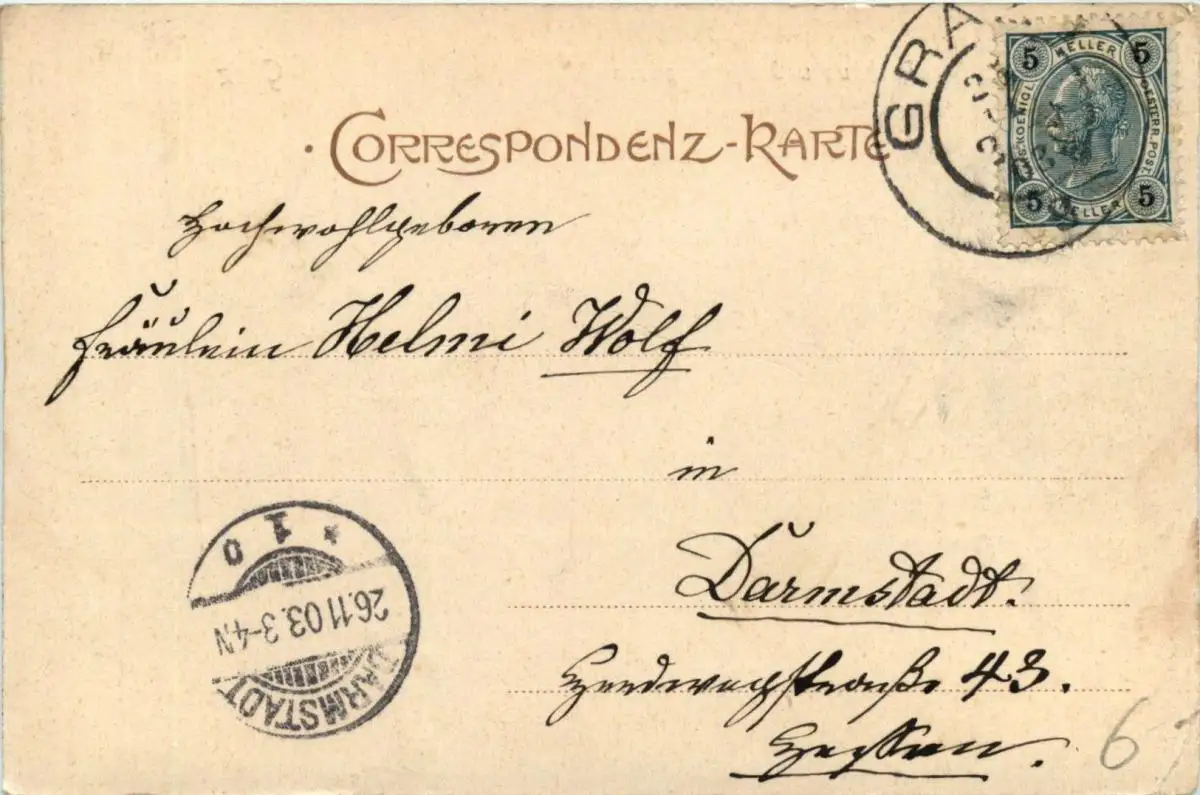 CORRESPONDENZ-KARTE
GRA
5 HELLER 5
KEKOENIGL. OESTERR. POST.
5 HELLER 5
Hochwohlgeboren
Fräulein Helmi Wolf
in
Darmstadt.
43.
Hessen.
* 1 o
26.11 03. 3-4.N
DARMSTADT
6